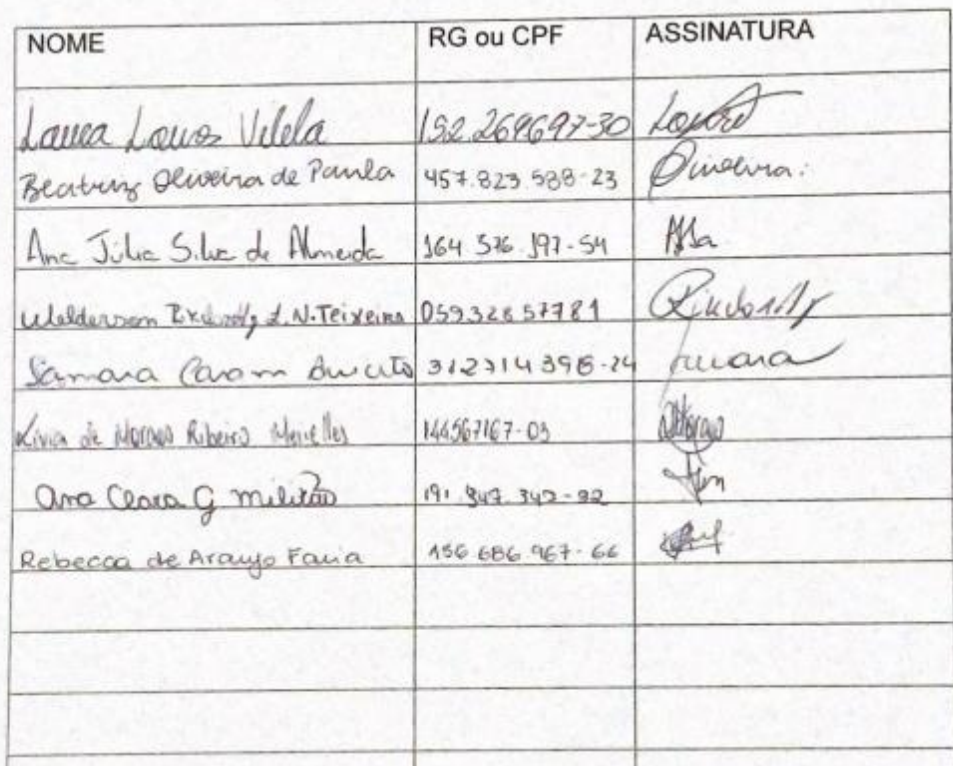 NOME RG ou CPF ASSINATURA
Laura Vilela 152.269697-30
Beatriz Oliveira de Paula 457.823.588-23 Oliveira.
Ana Júlia Silva de Almeida 164 576.197-54
Welderson L.N.Teixeira 05932857781
Samara 312314398-24 Samara
Livia de Moraes Ribeiro Meirelles 144567167-03
Ana Clara G Militão 191.847.342-92
Rebecca de Araujo Faria 156.686.967-66